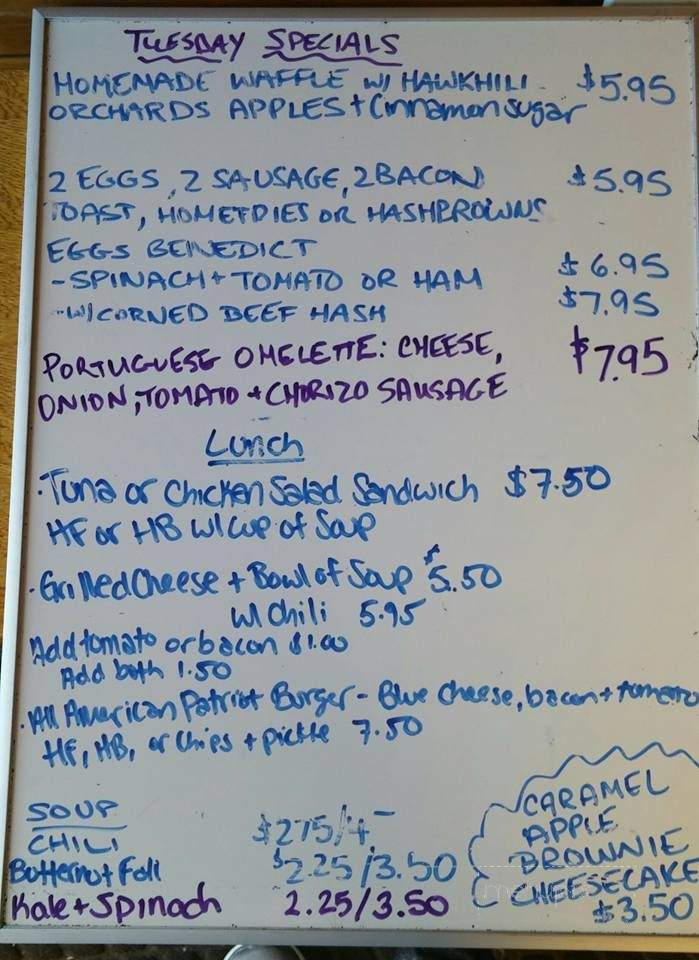 TUESDAY SPECIALS
HOMEMADE WAFFLE W/ HAWKHILL $5.95
ORCHARDS APPLES + Cinnamon sugar
2 EGGS, 2 SAUSAGE, 2 BACON $5.95
TOAST, HOMEFRIES OR HASHBROWNS
EGGS BENEDICT
-SPINACH + TOMATO OR HAM $6.95
-W/CORNED BEEF HASH $7.95
PORTUGUESE OMELETTE: CHEESE, $7.95
ONION, TOMATO + CHORIZO SAUSAGE
Lunch
·Tuna or Chicken Salad Sandwich $7.50
HF or HB w/cup of Soup
·Grilled Cheese + Bowl of Soup $5.50
w/ chili 5.95
Add tomato or bacon $1.00
Add both 1.50
·All American Patriot Burger - Blue cheese, bacon + tomato
HF, HB, or Chips + pickle 7.50
SOUP
CHILI $2.75/4-
Butternut Fall $2.25/3.50
Kale + Spinach 2.25/3.50
CARAMEL
APPLE
BROWNIE
CHEESECAKE
$3.50